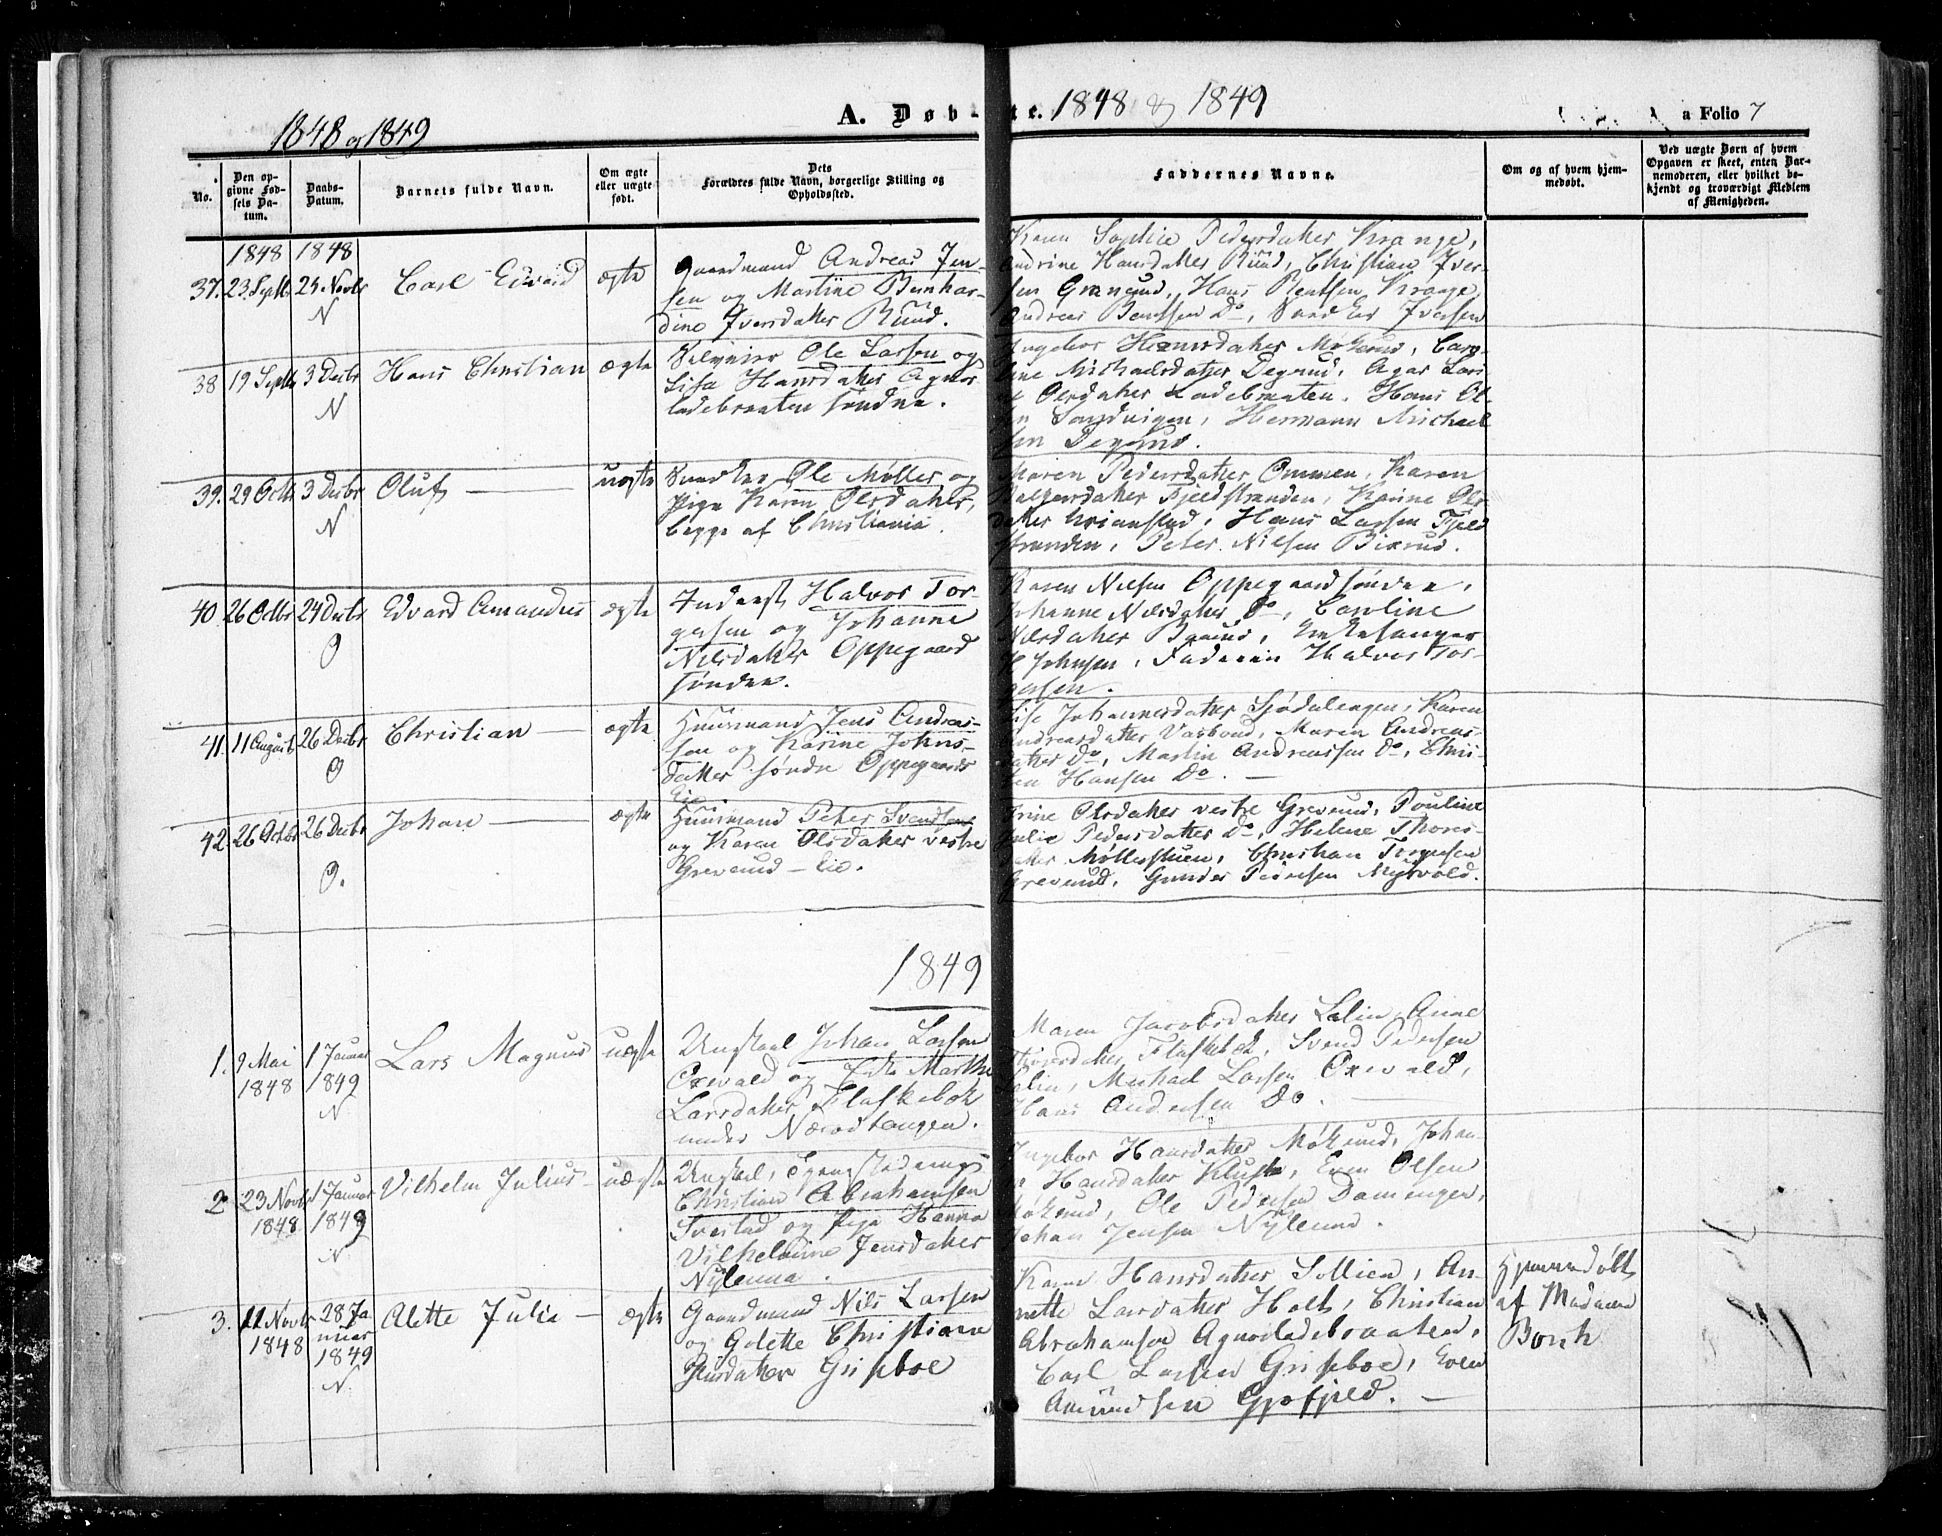 1848 og 1849
A. Døb- te. 1848 & 1849
a Folio 7
No.
Den opgivne Fødsels Datum.
Daabs-Datum.
Barnets fulde Navn.
Om ægte eller uægte født.
Dets Forældres fulde Navn, borgerlige Stilling og Opholdssted.
Faddernes Navne.
Om og af hvem hjemmedøbt.
Ved uægte Børn af hvem Opgaven er skeet, enten Barnemoderen, eller hvilket bekjendt og troværdigt Medlem af Menigheden.
1848 1848
37. 23 Septbr Novbr N
Carl Edvard
ægte
Gaardmand Andreas Jen-
sen og Martine Bernhar-
dine Iversdatter Ruud.
Karen Sophie Pedersdatter Krange,
Andrine Hansdatter Ruud, Christian Iver-
sen Granerud, Hans Bentsen Krange
Andreas Do, Iversen
38 19 Septbr 3 Decbr N
Hans Christian
ægte
Ole Larsen og
Lisa Hansdatter Agnor
ladebraaten søndre.
Ingebor Hansdatter Møkerud, Caro-
line Michaelsdatter Degrud,
Olsdatter Ladebraaten. Hans Ol-
sen Sandvigen, Hermann Michael
sen Degrud.
39. 29 Octbr 3 Decbr N
Oluf —
uægte
Ole Møller og
Pige Karen Olsdatter,
begge af Christiania.
Maren Pedersdatter Ommen, Karen
Fjeldstranden, Karine Ols-
datter Hans Larsen Fjeld
stranden, Peter Nilsen
40 26 Octbr 24 Decbr O
Edvard Amandus
ægte
Inderst Halvor Tor-
gersen og Johanne
Nilsdatter Oppegaard
søndre.
Karen Nilsen Oppegaard søndre,
Johanne Nilsdatter Do, Caroline
Nilsdatter Kirkesanger
Johnsen, Faderen Halvor Tor-
gersen.
41. 11 August 26 Decbr O
Christian —
ægte
Huusmand Jens Andrea-
sen og Karine Johns-
datter søndre Oppegaards
Eie
Lise Johannesdatter Sjødalengen, Karen
Andreasdatter Maren Andreas-
datter Do, Martin Andreassen Do, Chri-
Hansen Do. —
42. 26 Octbr 26 Decbr O.
Johan —
ægte
Huusmand Peter Svendsen
og Karen Olsdatter vestre
Greverud - Eie.
Trine Olsdatter vestre Greverud, Pouline
Julie Pedersdatter Do, Helene Thores-
datter Møllerstuen, Christian
Greverud, Gunder Pedersen Myrvold.
1849
1. 9 Mai 1848 1 Januar 1849 N
Lars Magnus
uægte
Ungkarl Johan Larsen
Oxevald og Marthe
Larsdatter Flaskebæk
under Næsodtangen.
Maren Jacobsdatter Anne
Flaskebæk, Svend Pedersen
Michael Larsen Oxevald,
Hans Andersen Do. —
2 23 Novbr 1848 1 Januar 1849 N
Vilhelm Julius -
uægte
Ungkarl,
Christian Abrahamsen
Svestad og Pige Hanna
Vilhelmine Jensdatter
Nylenna.
Ingebor Hansdatter Møkerud, Johan-
ne Hansdatter Even Olsen
Møkerud, Ole Pedersen
Johan Jensen Nylenna.
3. 11 Novbr 1848 28 Januar 1849 N.
Alette Julie —
ægte
Gaardmand Nils Larsen
og Christiane
Griseboe
Karen Hansdatter Sollien, An-
nette Larsdatter Holt, Christian
Abrahamsen Agnorladebraaten,
Carl Larsen Griseboe, Even
Amundsen Gjøfjeld. —
Hjemmedøbt
af Madame